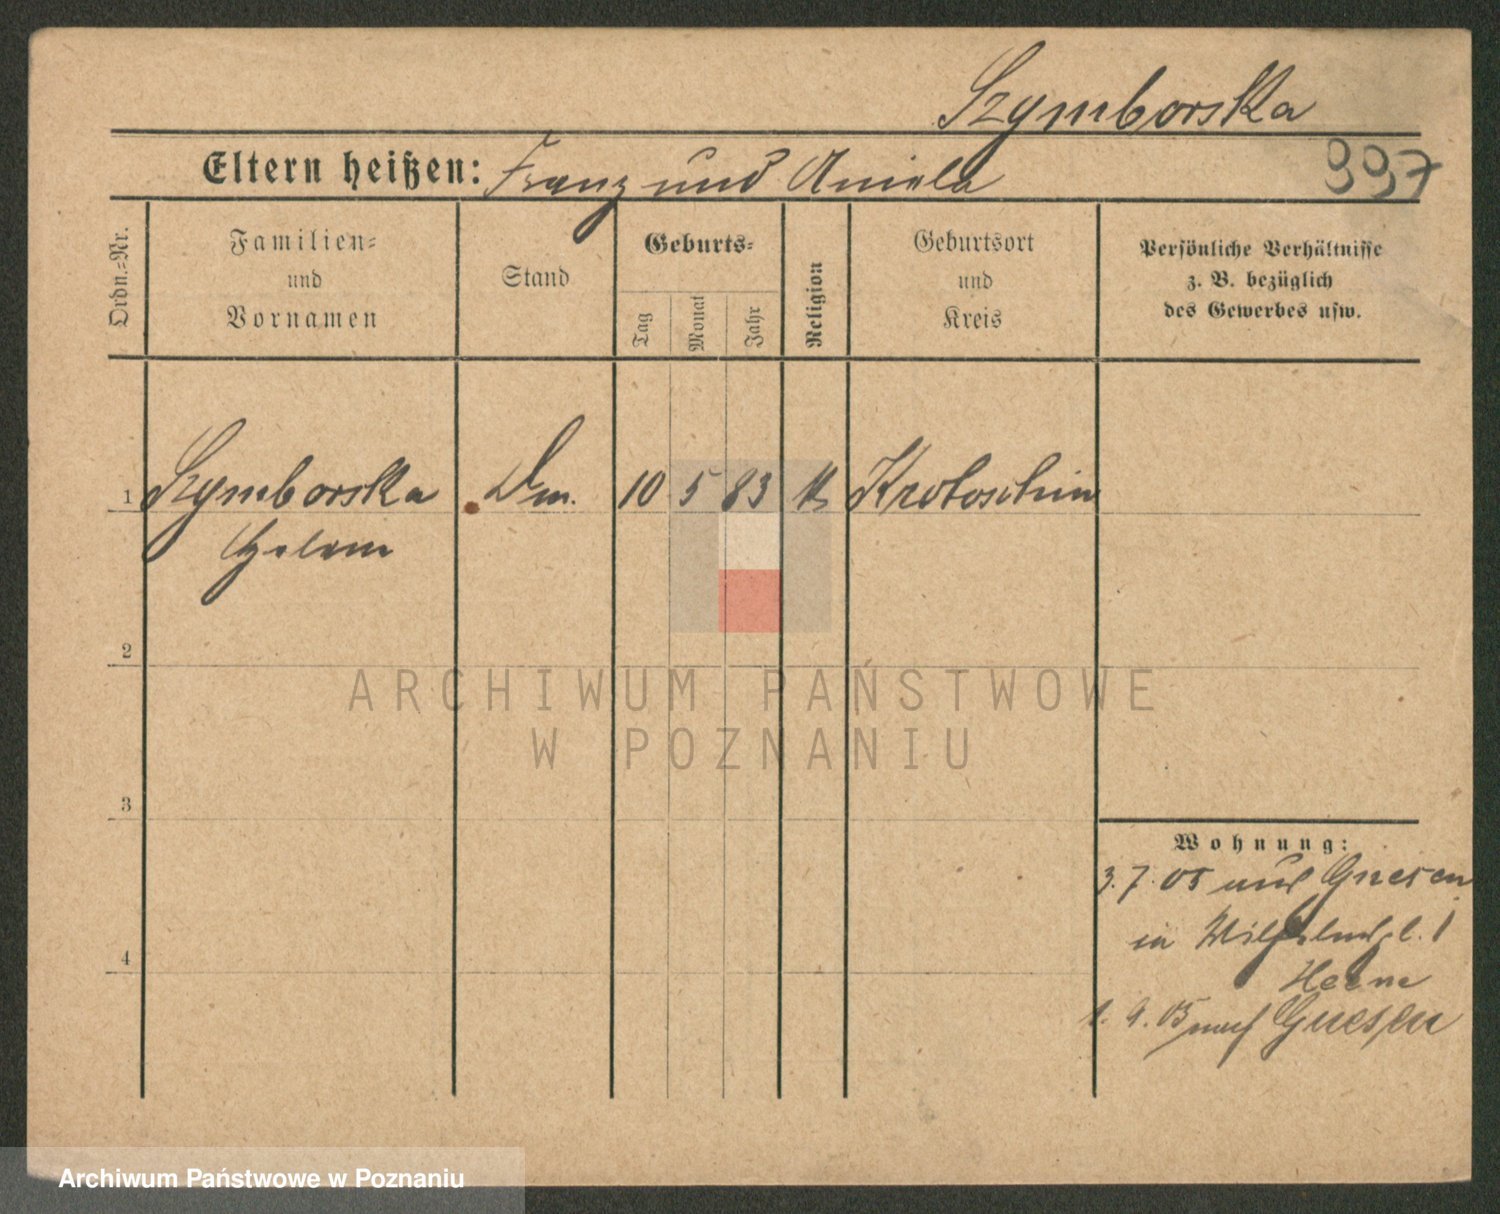 Szymborska
Eltern heißen: Franz und Aniela
997
Ordn.-Nr.
Familien-
und
Vornamen
Stand
Geburts-
Tag
Monat
Jahr
Religion
Geburtsort
und
Kreis
Persönliche Verhältnisse
z. B. bezüglich
des Gewerbes usw.
1 Szymborska 10 5 83 Krotoschin
Helene
2
3
4
ARCHIWUM PAŃSTWOWE
W POZNANIU
Wohnung:
3.7.05 aus Gnesen
in 1
1.9.05 nach Gnesen
Archiwum Państwowe w Poznaniu